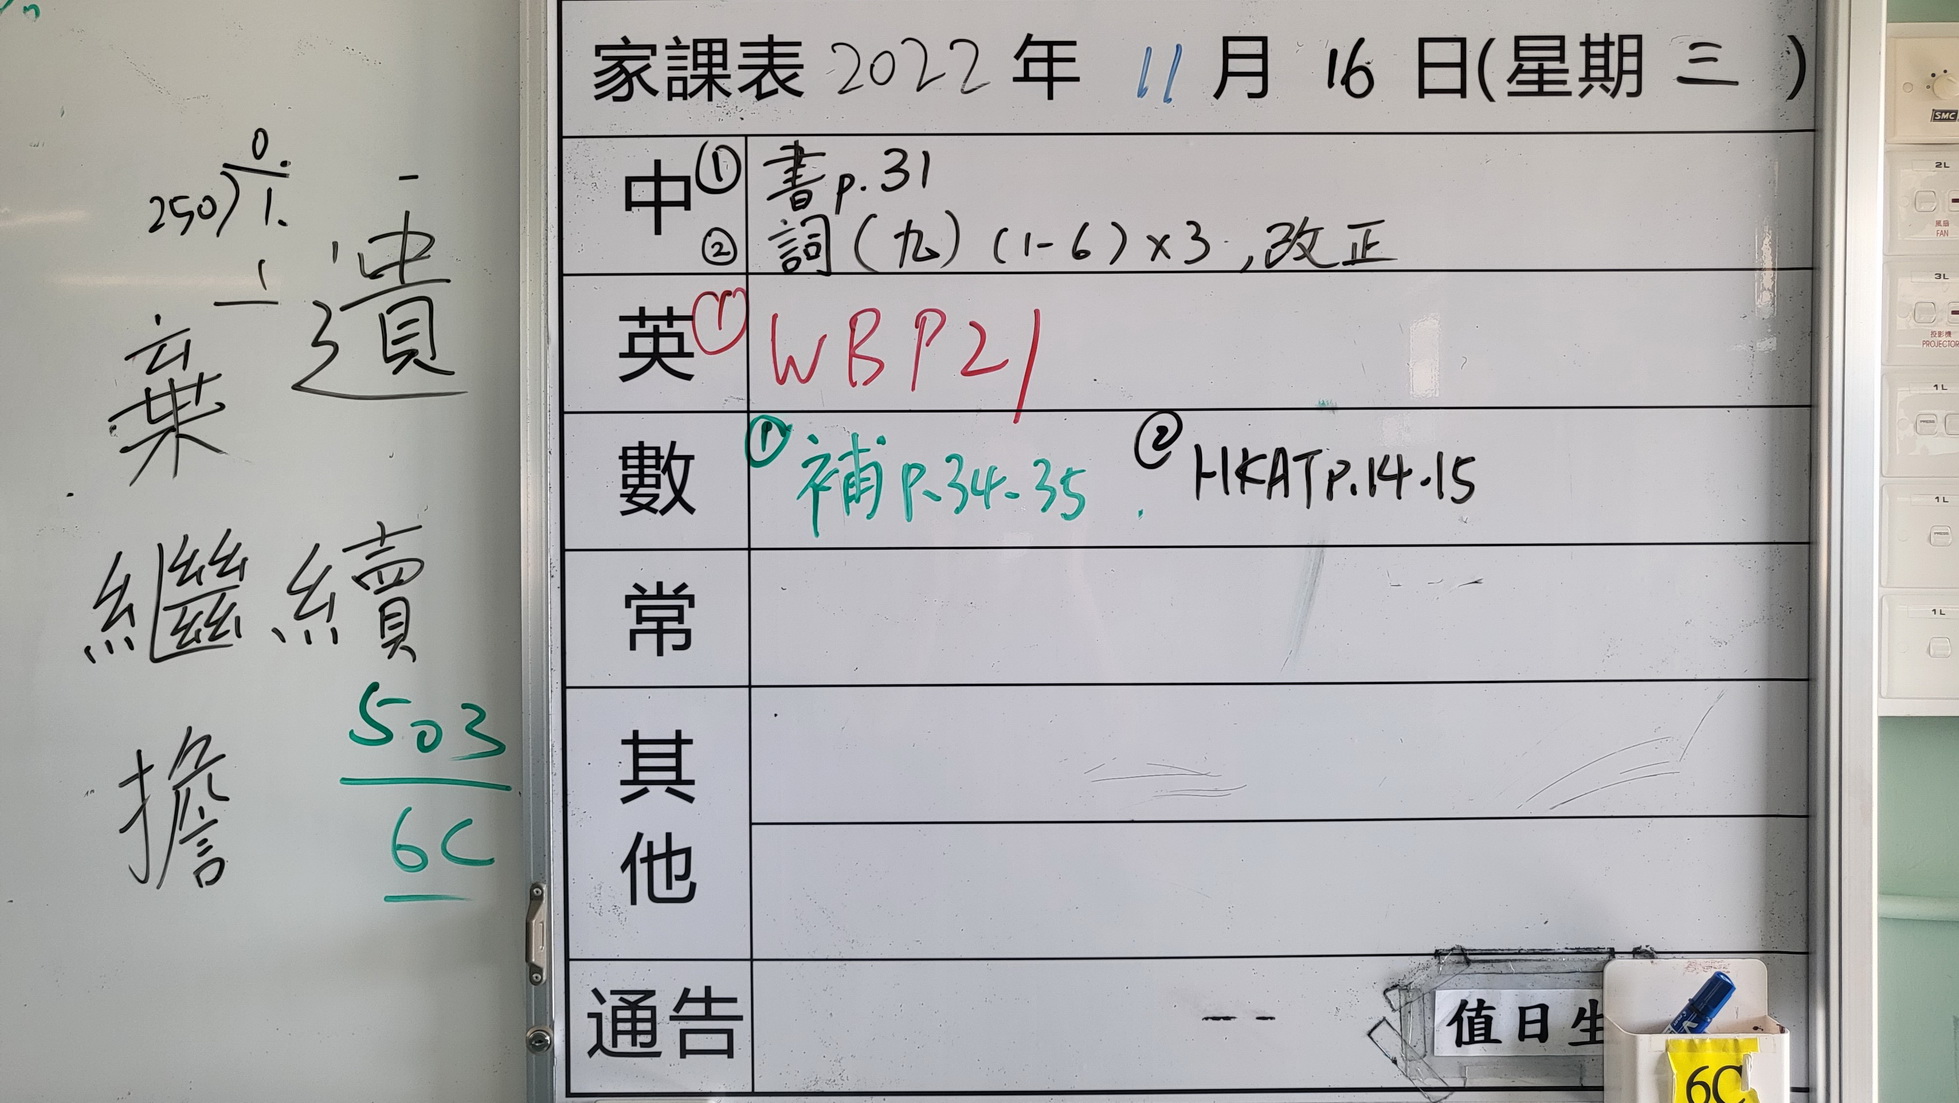 0.
250)1.
1
遺
棄
繼續
擔
503
6C
家課表 2022年 11月 16日(星期三)
中 ① 書p.31
② 詞(九)(1-6)×3,改正
英 ① WBP21
數 ① 補P.34-35 ② HKATp.14-15
常
其他
通告
值日生
6C
SMC
2L
風扇
FAN
3L
投影機
PROJECTOR
1L
PRESS
1L
PRESS
1L